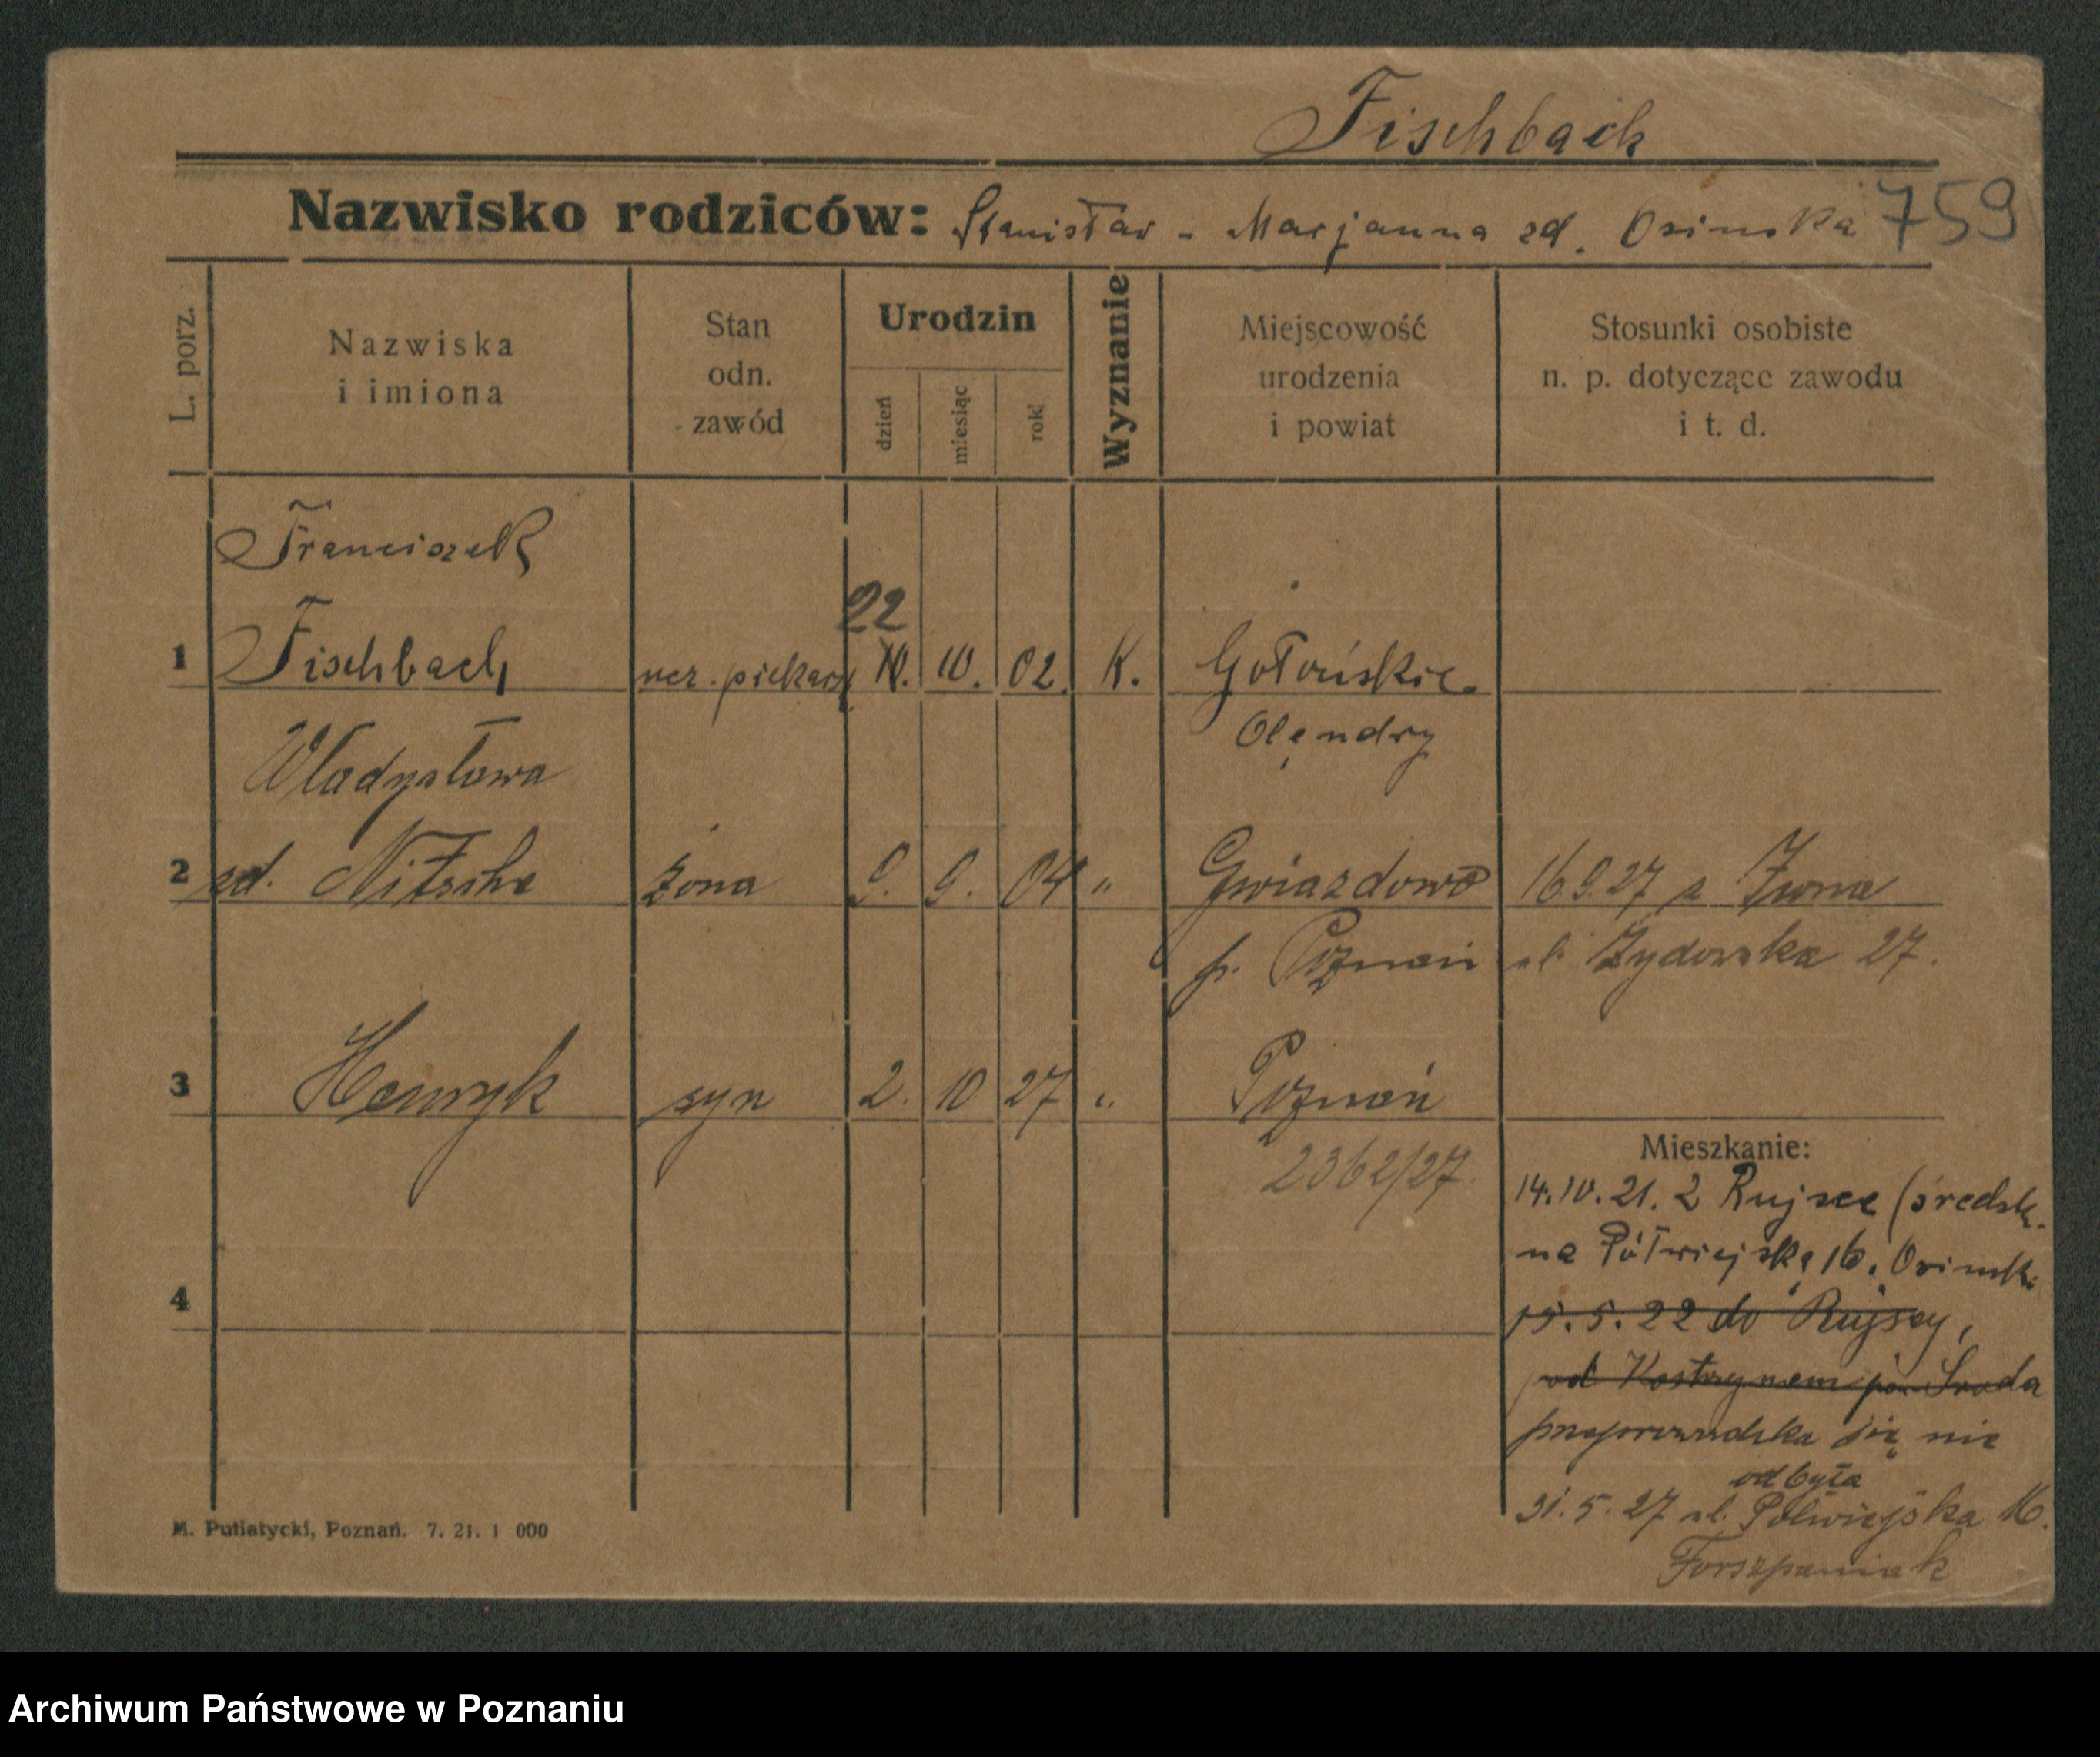 Fischbach
Nazwisko rodziców: Stanisław - Marjanna zd. Osinska 759
L. porz.
Nazwiska
i imiona
Stan
odn.
zawód
Urodzin
dzień
miesiąc
rok
Wyznanie
Miejscowość
urodzenia
i powiat
Stosunki osobiste
n. p. dotyczące zawodu
i t. d.
Franciszek
22
1 Fischbach ucz. piekarz 10. 10. 02. K. Gołuńskie
Olęndry
Władysława
2 zd. Nitsche żona 9. 9. 04 " Gwiazdowo 16.9.27 z żoną
p. Poznań ul. Żydowska 27.
3 Henryk syn 2. 10 27 " Poznań
2362/27.
Mieszkanie:
14.10.21. z Rujsce (średsk.
na Półwiejską 16. Osinsk
4
15.5.22 do Rujscy,
pod Kostrzynem pow. Środa
przeprowadzka się nie
odbyła
31.5.27 ul. Półwiejska 16.
Forszpaniak
M. Putiatycki, Poznań. 7. 21. 1 000
Archiwum Państwowe w Poznaniu